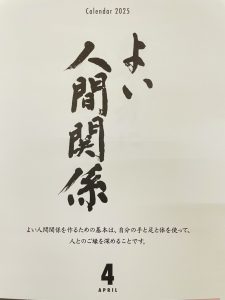 Calendar 2025
よい
人間関係
よい人間関係を作るための基本は、自分の手と足と体を使って、
人とのご縁を深めることです。
4
APRIL